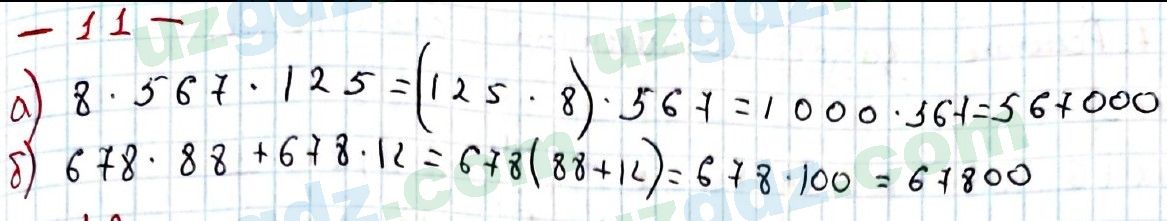 - 11 -
а) 8 · 567 · 125 = (125 · 8) · 567 = 1000 · 567 = 567000
б) 678 · 88 + 678 · 12 = 678(88 + 12) = 678 · 100 = 67800
uzgdz.com